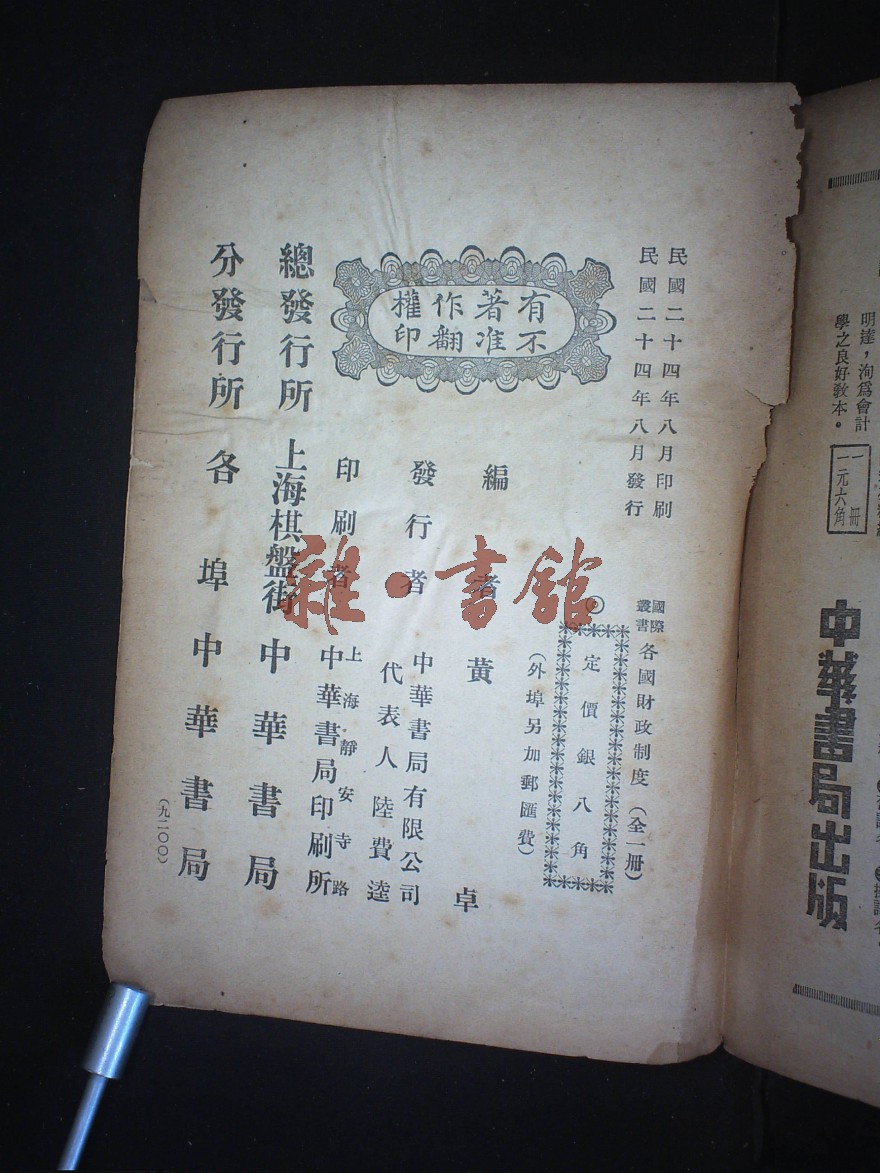 民國二十四年八月印刷
民國二十四年八月發行
有著作權
不准翻印
國際叢書 各國財政制度 (全一册)
◎定價銀八角
(外埠另加郵匯費)
編者 黃卓
發行者 中華書局有限公司
代表人 陸費逵
印刷者 上海靜安寺路
中華書局印刷所
總發行所 上海棋盤街 中華書局
分發行所 各埠中華書局
(九二〇〇)
雜·書館
明達，洵爲會計
學之良好敎本。
一册
一元六角
中華書局出版